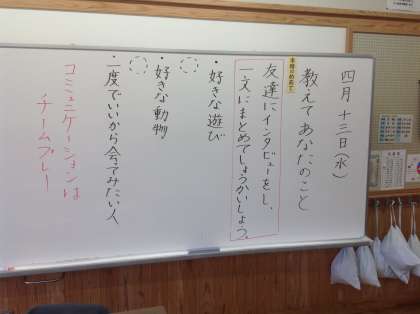 四月十三日(水)
教えてあなたのこと
本時のめあて
友達にインタビューをし、
一文にまとめてしょうかいしよう。
・好きな遊び
・好きな動物
・一度でいいから会ってみたい人
コミュニケーションは
チームプレー